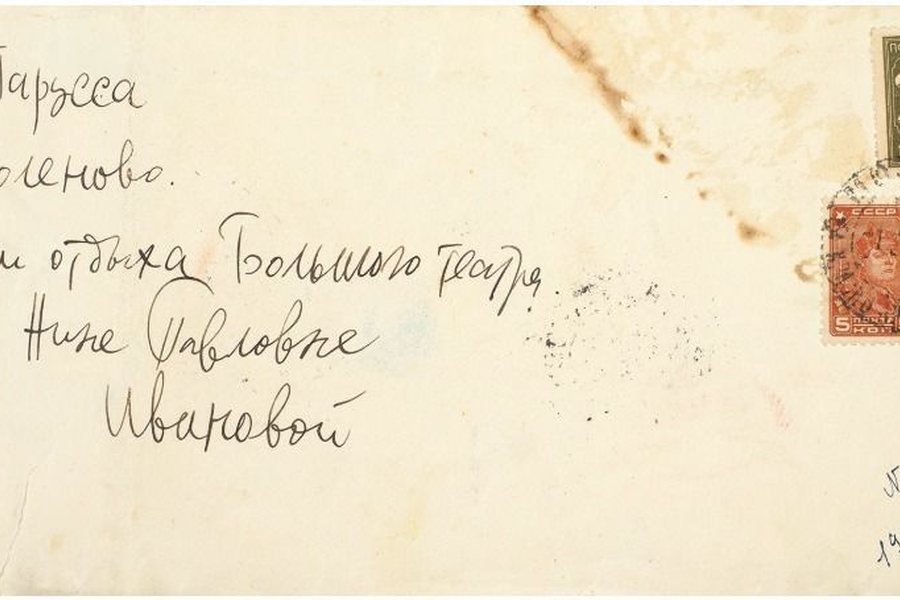 Тарусса
оленово.
м отдыха Большого театра
Нине Павловне
Ивановой
СССР
5 ПОЧТА
КОП